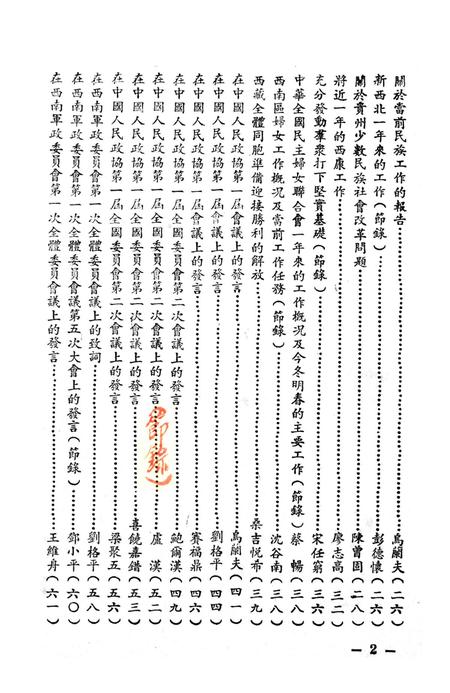 關於當前民族工作的報告……烏蘭夫(二六)
新西北一年來的工作(節錄)……彭德懷(二六)
關於貴州少數民族社會改革問題……陳曾固(二八)
將近一年的西康工作……廖志高(三二)
充分發動羣衆打下堅實基礎(節錄)……宋任窮(三六)
中華全國民主婦女聯合會一年來的工作概況及今冬明春的主要工作(節錄)蔡暢(三八)
西南區婦女工作概況及當前工作任務(節錄)……沈谷南(三八)
西藏全體同胞準備迎接勝利的解放……桑吉悅希(三九)
在中國人民政協第一屆會議上的發言……烏蘭夫(四一)
在中國人民政協第一屆會議上的發言……劉格平(四四)
在中國人民政協第一屆會議上的發言……賽福鼎(四六)
在中國人民政協第一屆全國委員會第二次會議上的發言……鮑爾漢(四九)
在中國人民政協第一屆全國委員會第二次會議上的發言(節錄)……盧漢(五二)
在中國人民政協第一屆全國委員會第二次會議上的發言……喜饒嘉錯(五三)
在中國人民政協第一屆全國委員會第二次會議上的發言……梁聚五(五六)
在西南軍政委員會第一次全體委員會議上的致詞……劉格平(五八)
在西南軍政委員會第一次全體委員會議第五次大會上的發言(節錄)……鄧小平(六〇)
在西南軍政委員會第一次全體委員會議上的發言……王維舟(六一)
— 2 —